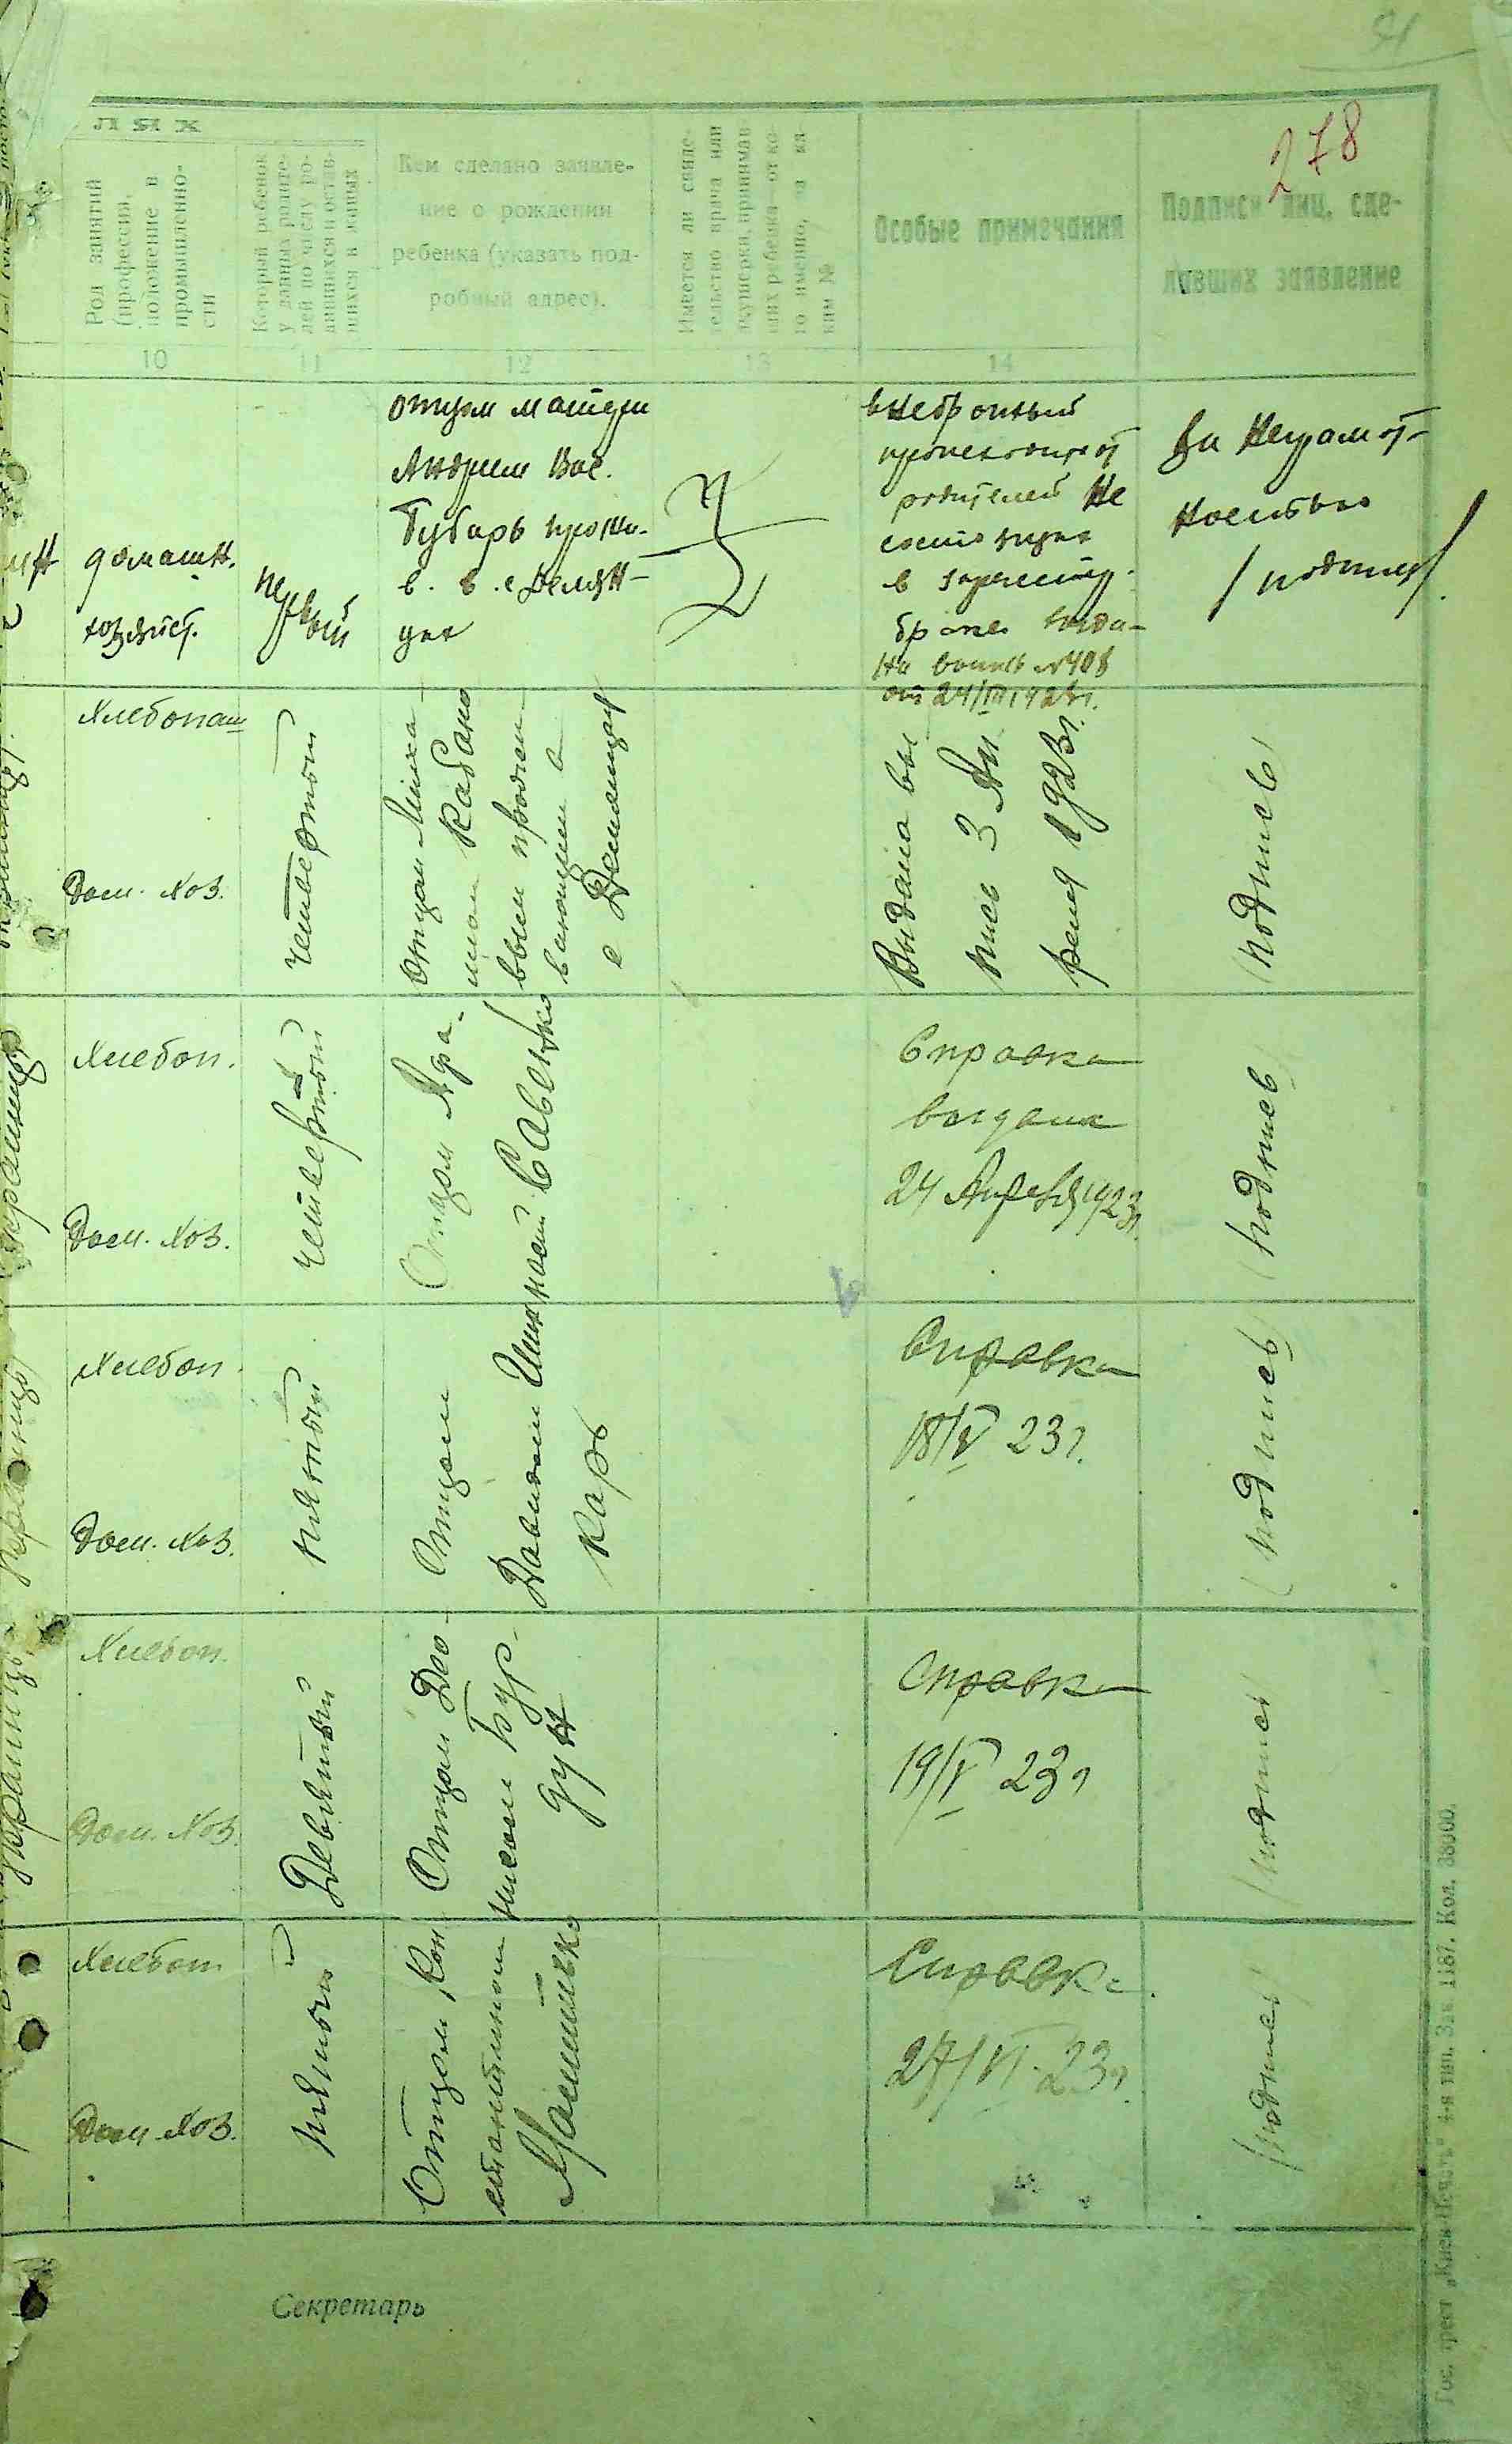 91
278
лях
Род занятий
(профессия,
положение в
промышленно-
сти
Который ребенок
у данных родите-
лей по числу ро-
дившихся и остав-
шихся в живых
Кем сделано заявле-
ние о рождении
ребенка (указать под-
робный адрес).
Имеется ли свиде-
тельство врача или
акушерки, принимав-
ших ребенка — от ко-
го именно, за ка-
ким №
Особые примечания
Подписи лиц, сде-
лавших заявление
10
11
12
13
14
домашн.
хозяйст.
первый
отцом матери
Андреем Вас.
Губарь прожи-
в. в с Демян-
цах
внебрачный
родителей не
в
браке выда-
на выпись №408
от 24/III 1923г.
За неграмот-
ностью
/подпись/
Хлебопаш
Дом. Хоз.
четвертый
отцом Миха-
илом Кабано
вым прожи-
вающим в
с Демянцах
Выдана вы
пись 3 Ап
реля 1923г.
(подпись)
Хлебоп.
Дом. Хоз.
четвертый
Отцом Афа-
насий Савенко
Справка
выдана
24 Апреля 1923г.
(подпись)
Хлебоп.
Дом. Хоз.
пятый
Отцом
Давидом Шин
карь
Справка
18/V 23г.
(подпись)
Хлебоп.
Дом. Хоз.
Девятый
Отцом Део-
нисом Бур-
дун
Справка
19/V 23г
(подпись)
Хлебоп.
Дом. Хоз.
пятый
Отцом Кон
стантином
Справка
27/VI 23г.
(подпись)
Секретарь
Гос. трест „Киев-Печать“ 4-я тип. Зак. 1187. Кол. 38000.